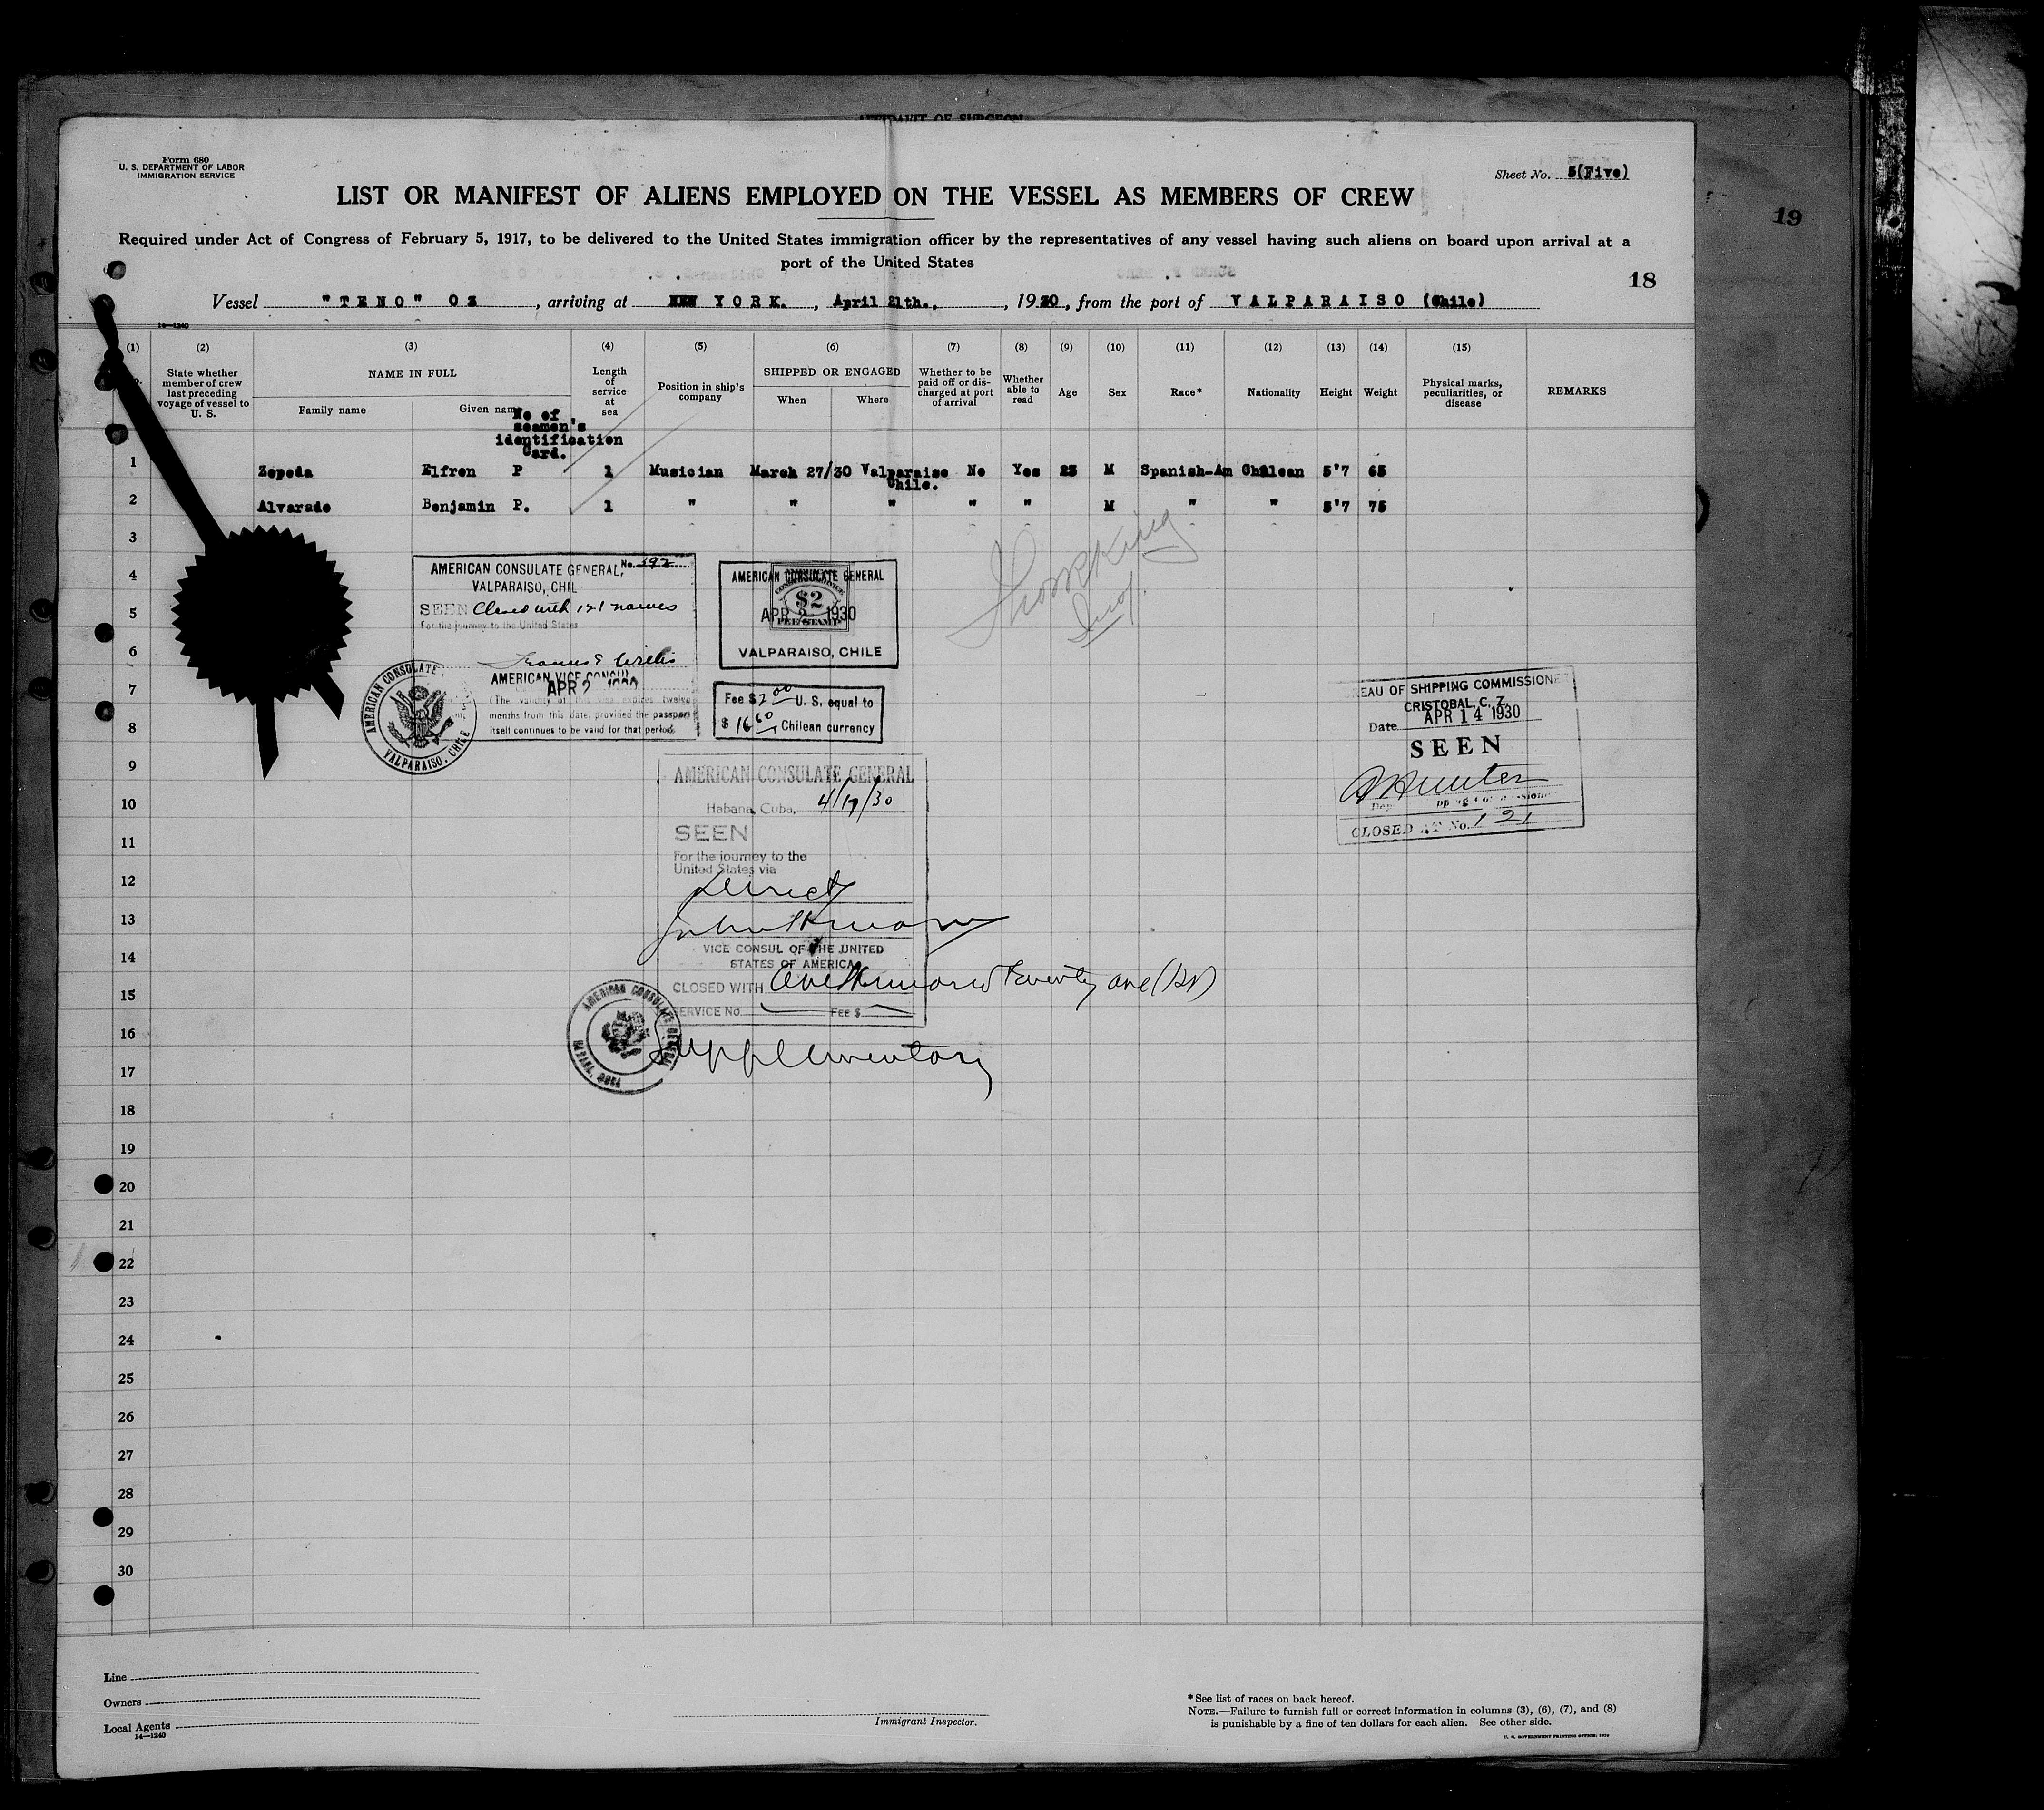 AFFIDAVIT OF SURGEON
Form 680
U. S. DEPARTMENT OF LABOR
IMMIGRATION SERVICE
Sheet No. 5(Five)
LIST OR MANIFEST OF ALIENS EMPLOYED ON THE VESSEL AS MEMBERS OF CREW
19
Required under Act of Congress of February 5, 1917, to be delivered to the United States immigration officer by the representatives of any vessel having such aliens on board upon arrival at a
port of the United States
18
Vessel "TENO" 03, arriving at NEW YORK., April 21th., 1930, from the port of VALPARAISO (Chile)
14—1240
(1) (2) (3) (4) (5) (6) (7) (8) (9) (10) (11) (12) (13) (14) (15)
State whether member of crew last preceding voyage of vessel to U. S.
NAME IN FULL
Family name
Given name
No of seamen's identification Card.
Length of service at sea
Position in ship's company
SHIPPED OR ENGAGED
When
Where
Whether to be paid off or discharged at port of arrival
Whether able to read
Age
Sex
Race*
Nationality
Height
Weight
Physical marks, peculiarities, or disease
REMARKS
1 Zepeda Elfren P 1 Musician March 27/30 Valparaiso Chile. No Yes 23 M Spanish-Am Chilean 5'7 65
2 Alvarado Benjamin P. 1 " " " " " M " " 5'7 75
3
4
5
6
7
8
9
10
11
12
13
14
15
16
17
18
19
20
21
22
23
24
25
26
27
28
29
30
AMERICAN CONSULATE GENERAL, No. 392
VALPARAISO, CHIL
SEEN Closed with 121 names
For the journey to the United States
Frances E Willis
AMERICAN VICE CONSUL
APR 2 1930
(The validity of this visa expires twelve
months from this date, provided the passport
itself continues to be valid for that period.
AMERICAN CONSULATE
VALPARAISO, CHILE
AMERICAN CONSULATE GENERAL
$2
APR 2 1930
FEE STAMP
VALPARAISO, CHILE
Fee $ 2.00 U. S. equal to
$ 16.60 Chilean currency
Insp.
EAU OF SHIPPING COMMISSIONE
CRISTOBAL, C. Z.
Date APR 14 1930
SEEN
CLOSED AT No. 121
AMERICAN CONSULATE GENERAL
Habana, Cuba, 4/17/30
SEEN
For the journey to the
United States via
Direct
VICE CONSUL OF THE UNITED
STATES OF AMERICA
CLOSED WITH One Hundred Twenty one (121)
SERVICE No. Fee $
AMERICAN CONSULATE GENERAL
HABANA, CUBA
Supplementary
Line
Owners
Local Agents
14—1240
Immigrant Inspector.
* See list of races on back hereof.
NOTE.—Failure to furnish full or correct information in columns (3), (6), (7), and (8)
is punishable by a fine of ten dollars for each alien. See other side.